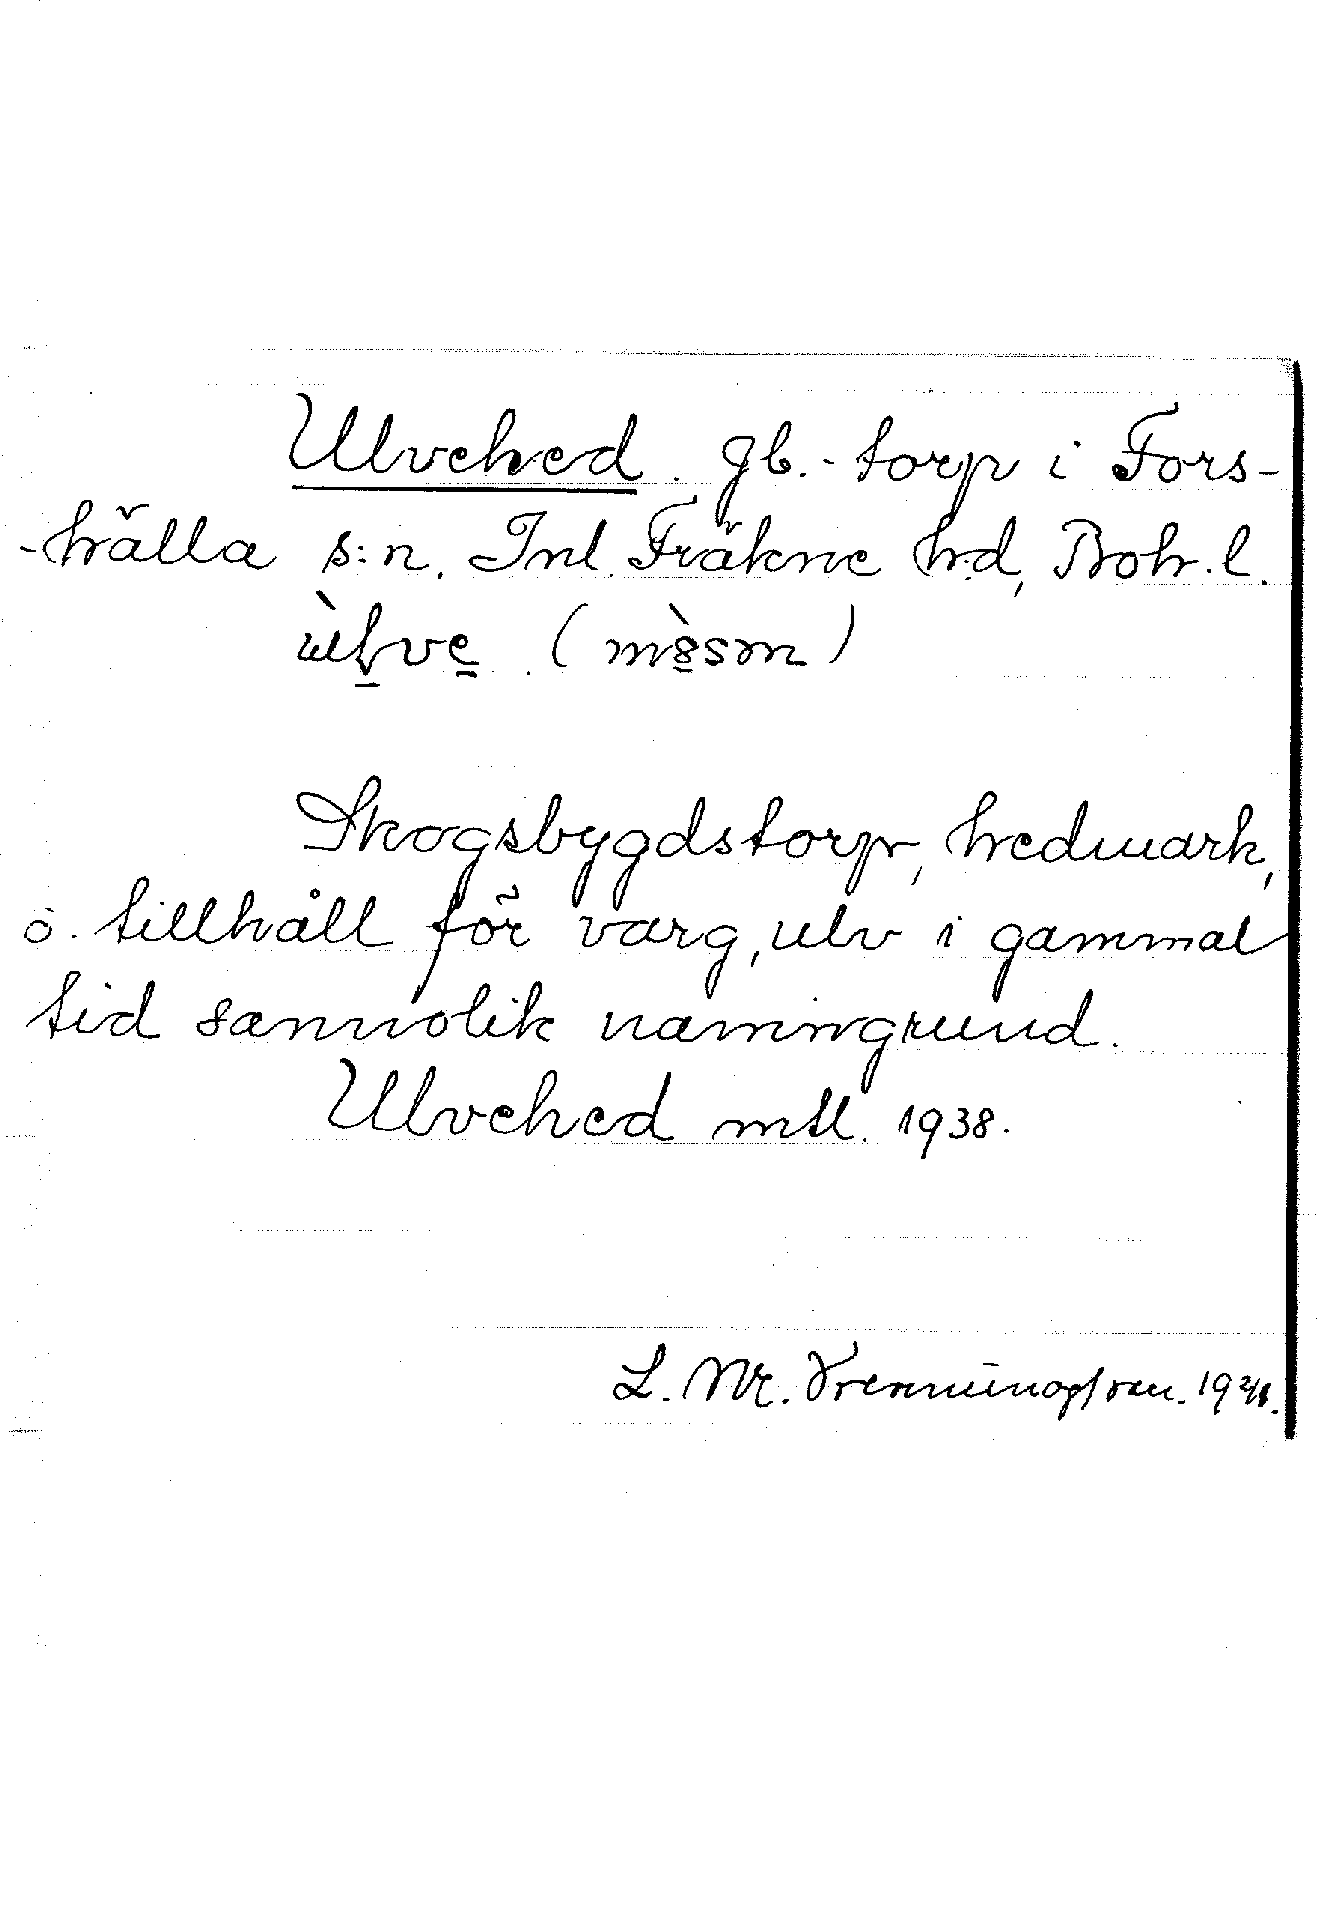 Ulvehed. gb.-torp i Fors-
-hälla s:n. Inl. Fräkne hd, Boh. l.
Skogsbygdstorp, hedmark,
o. tillhåll för varg, ulv i gammal
tid sannolik namngrund.
Ulvehed mtl. 1938.
L. M.